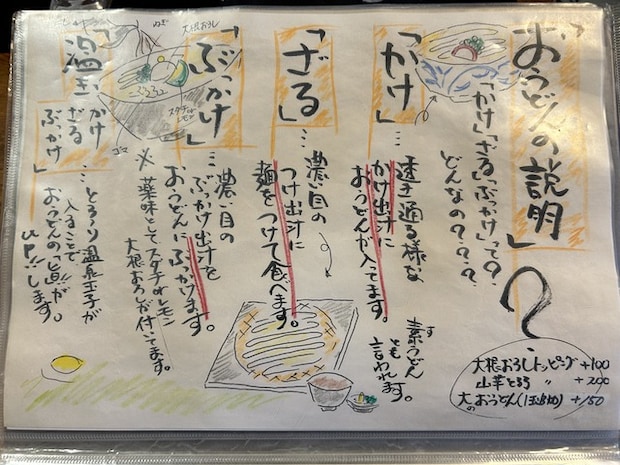 「おうどんの説明」
「かけ」「ざる」「ぶっかけ」って?
どんなの???
「かけ」…
透き通る様な
かけ出汁に
おうどんが入ってます。
素うどん
す
とも
言われます。
「ざる」…
濃い目の
つけ出汁に
麺をつけて食べます。
「ぶっかけ」…
濃い目の
ぶっかけ出汁を
おうどんにぶっかけます。
※薬味としてスダチorレモン
大根おろしが付いてます。
大根おろし
ねぎ
スダチorレモン
ゴマ
「温玉 かけ
ざる
ぶっかけ」
…とろ〜り温泉玉子が
入ることで
おうどんの「質」が
UP!!します。
?
大根おろしトッピング+100
山芋とろろ 〃 +200
大の おうどん(1玉半) +150